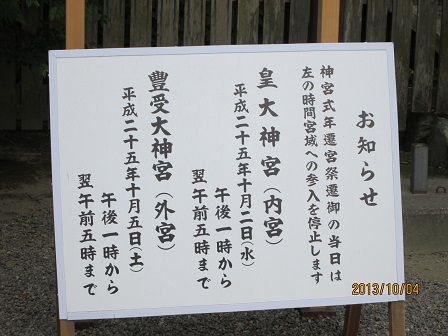 お知らせ
神宮式年遷宮祭遷御の当日は
左の時間宮域への参入を停止します
皇大神宮（内宮）
平成二十五年十月二日（水）
午後一時から
翌午前五時まで
豊受大神宮（外宮）
平成二十五年十月五日（土）
午後一時から
翌午前五時まで
2013/10/04